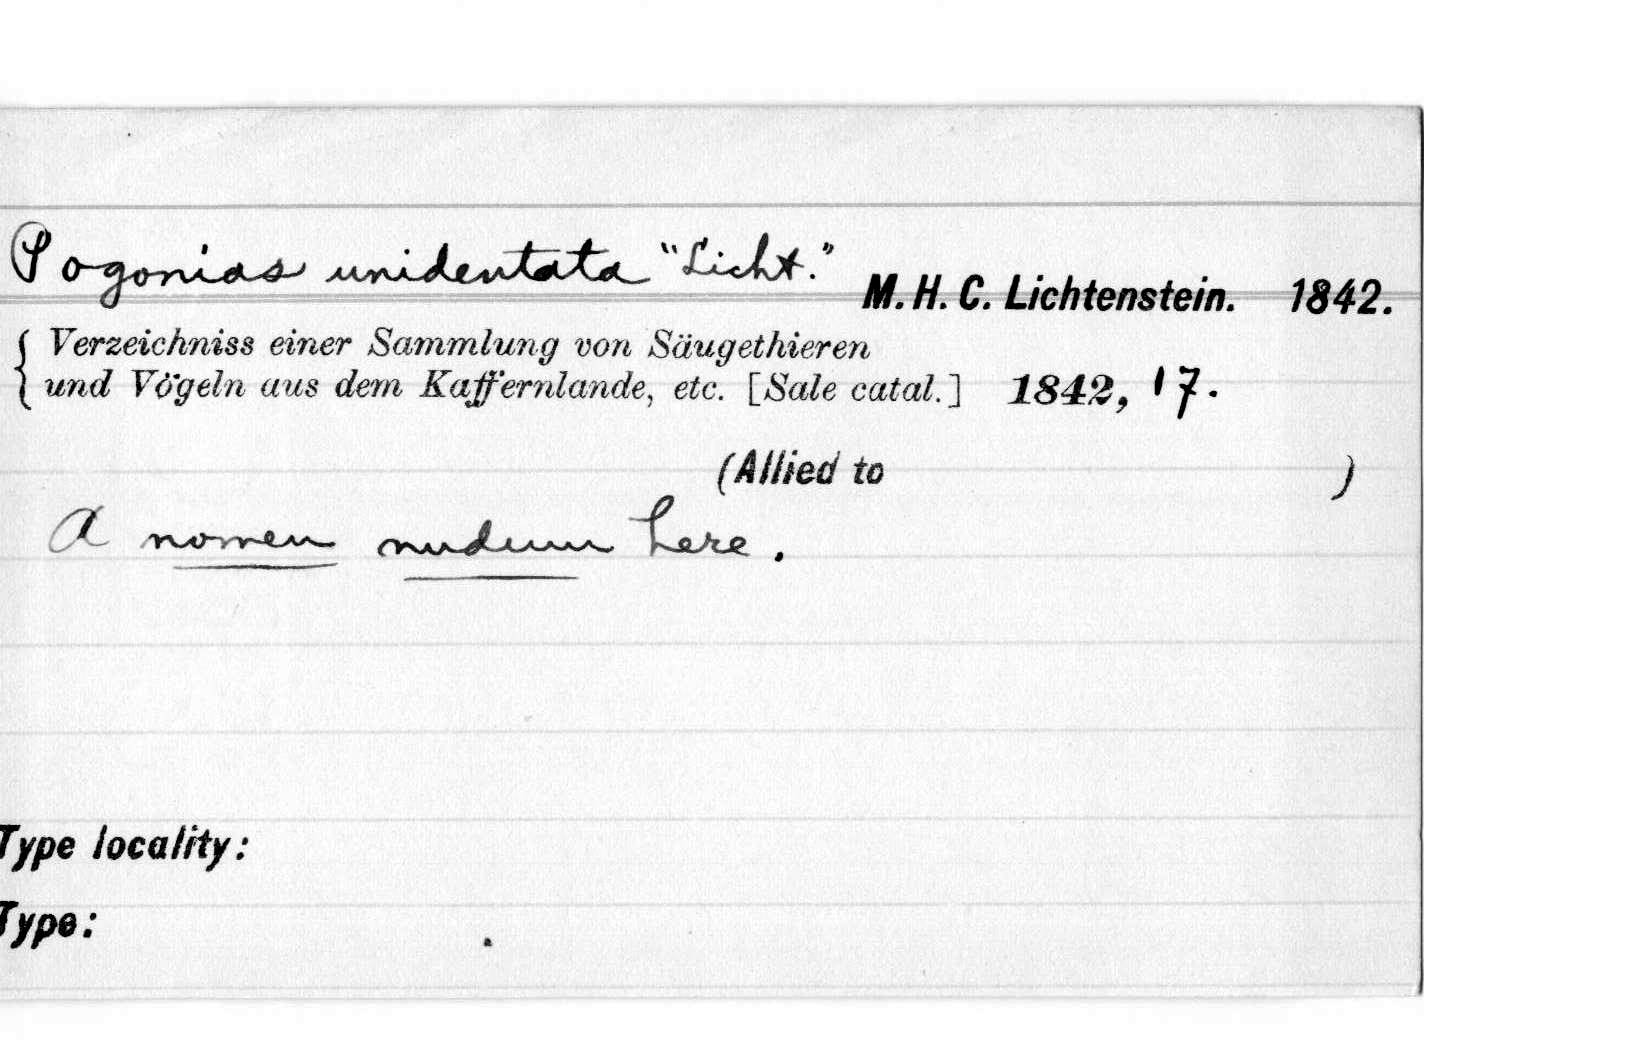 Pogonias unidentata "Licht."
M. H. C. Lichtenstein. 1842.
Verzeichniss einer Sammlung von Säugethieren
und Vögeln aus dem Kaffernlande, etc. [Sale catal.] 1842, 17.
(Allied to )
A nomen nudum here.
Type locality:
Type: